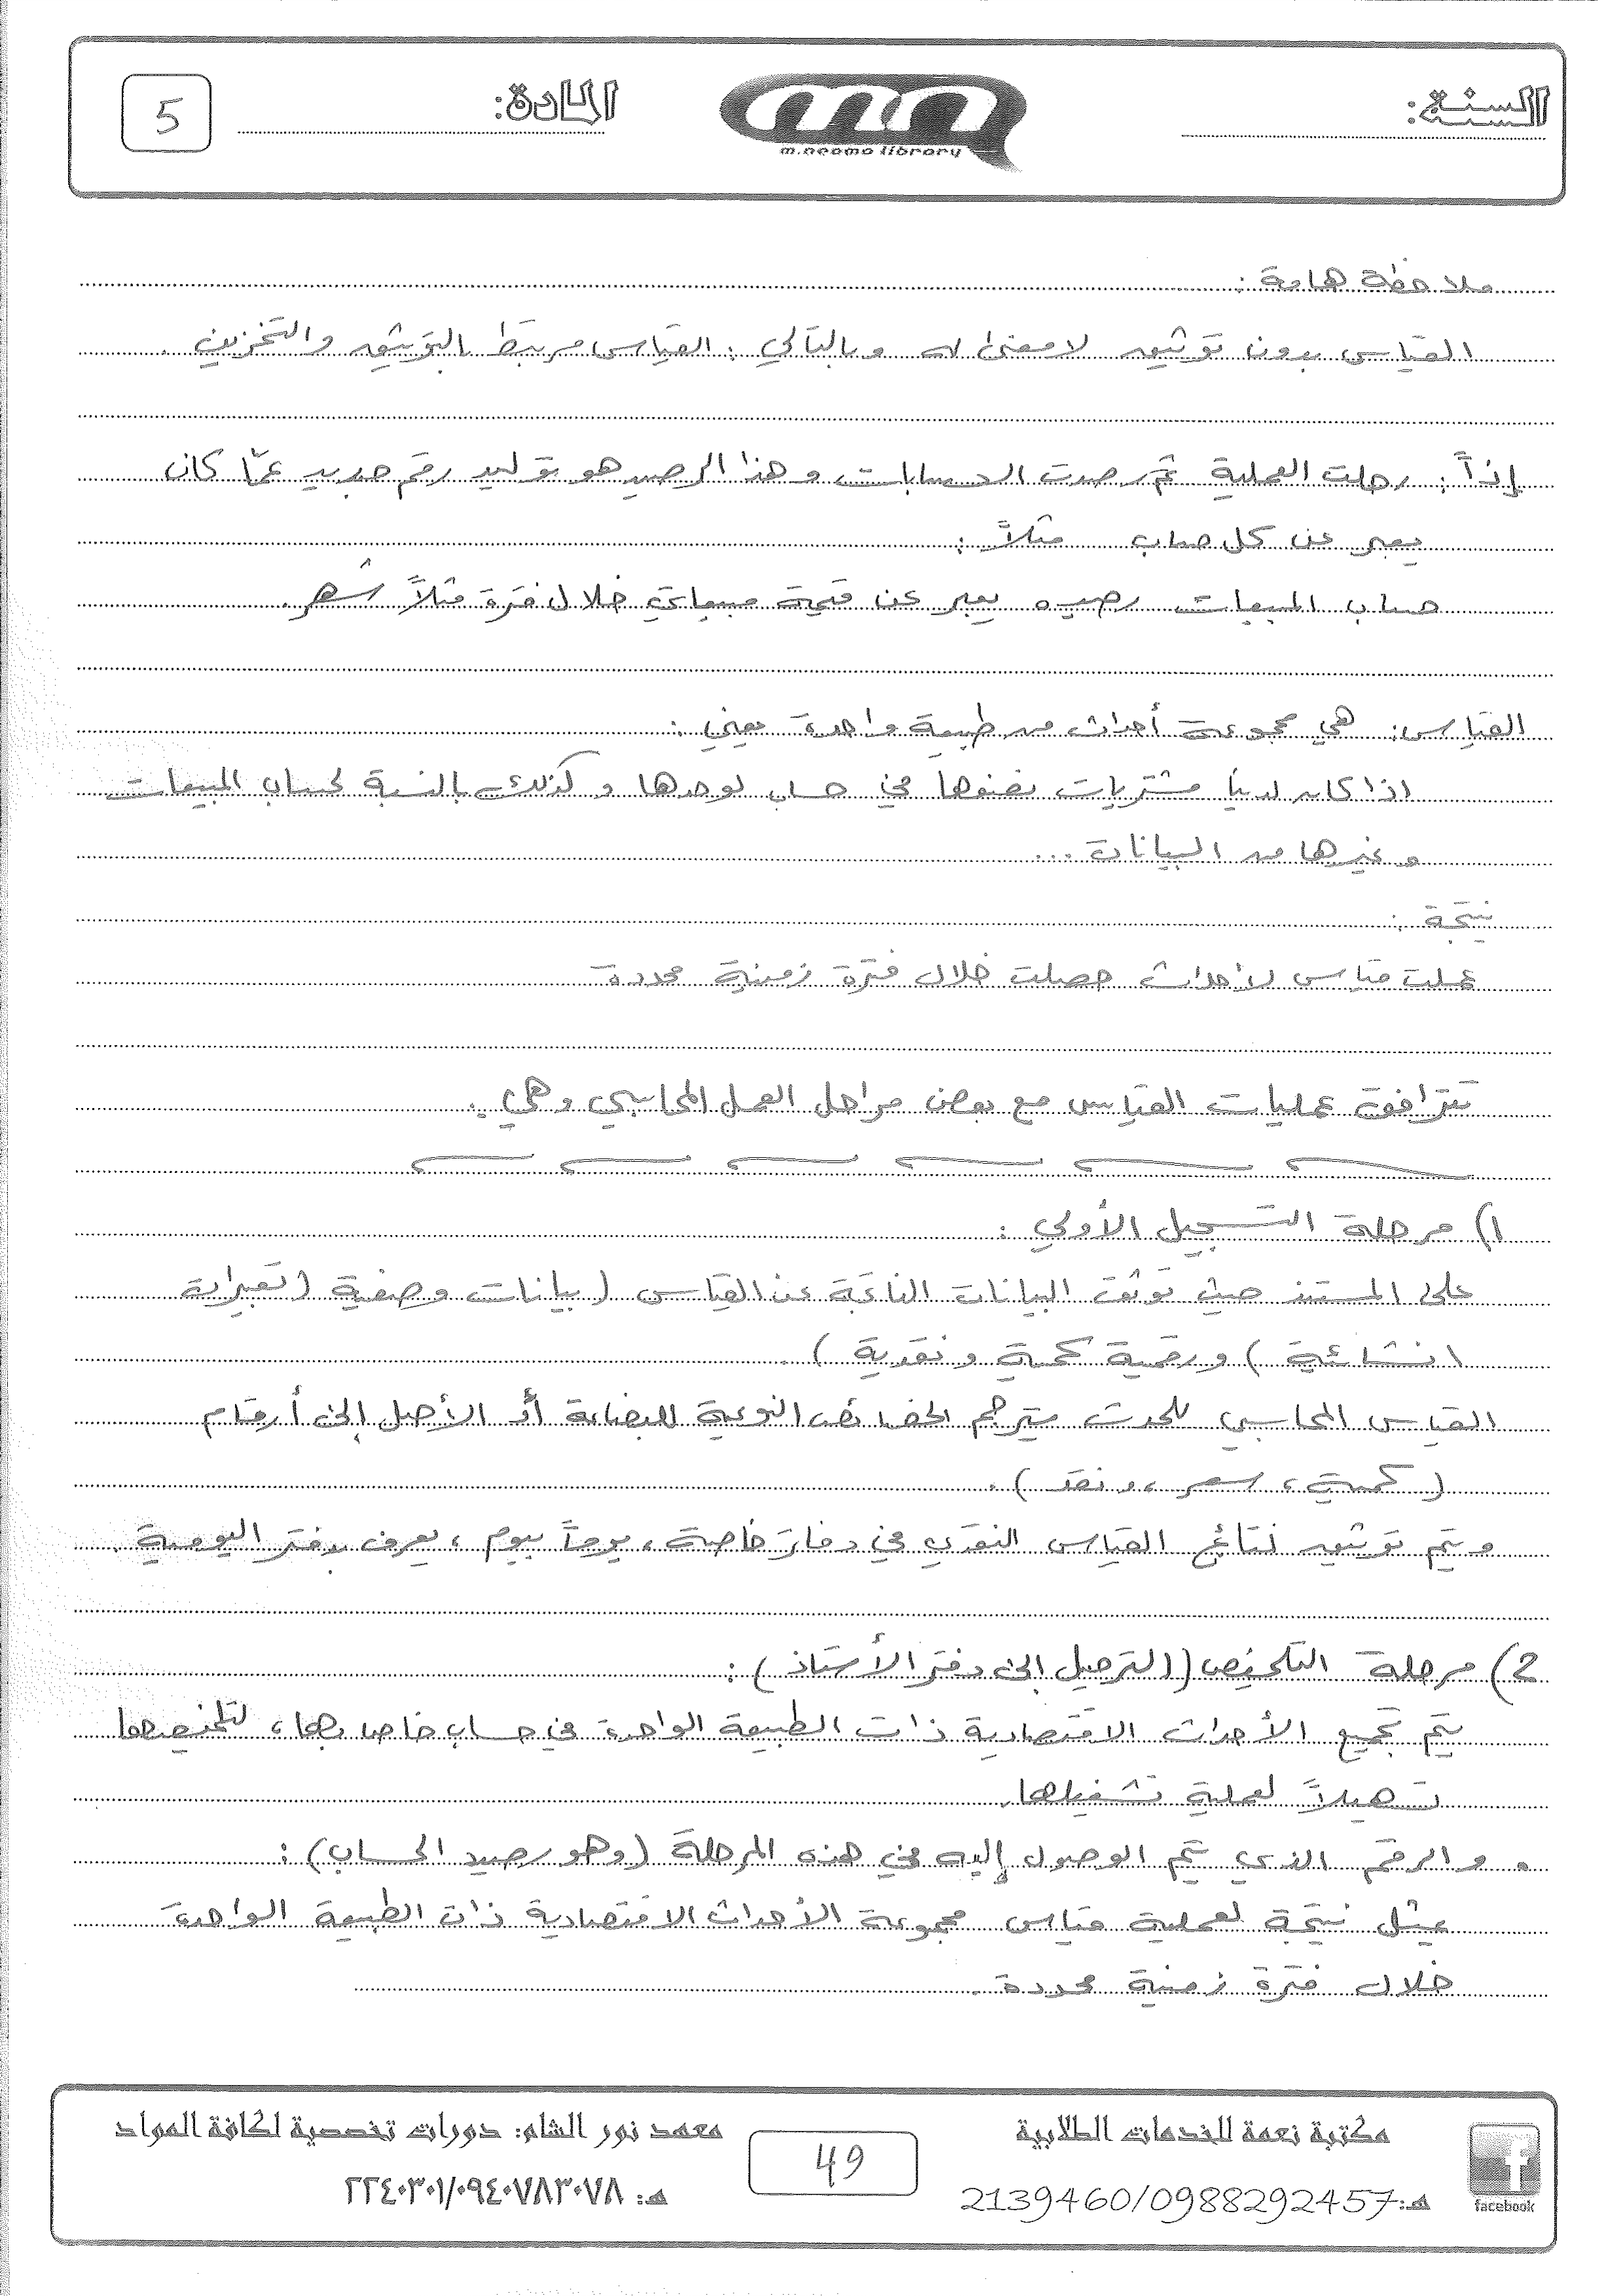 السنة:
المادة:
5
m.neama library
ملاحظة هامة :
القياس بدون توثيق لا معنى له وبالتالي : القياس مرتبط بالتوثيق والتخزين .
إذاً : رحلت العملية ثم رصدت الحسابات وهذا الرصيد هو توليد رقم جديد عمّا كان
يعبر عن كل حساب مثلاً :
حساب المبيعات رصيده يعبر عن قيمة مبيعاتي خلال فترة مثلاً شهر .
القياس : هي مجموعة أحداث من طبيعة واحدة يعني :
اذا كان لدينا مشتريات نضعها في حساب لوحدها وكذلك بالنسبة لحساب المبيعات
وغيرها من البيانات ...
نتيجة :
عملت قياس لأحداث حصلت خلال فترة زمنية محددة
تترافق عمليات القياس مع بعض مراحل العمل المحاسبي وهي :
1) مرحلة التسجيل الأولي :
على المستند حيث توثق البيانات الناتجة عن القياس ( بيانات وصفية ( تعبيرات
انشائية ) ورقمية كمية ونقدية ) .
القياس المحاسبي للحدث يترجم الخصائص النوعية للبضاعة أو الأصل إلى أرقام
( كمية ، سعر ، ونقد ) .
ويتم توثيق نتائج القياس النقدي في دفاتر خاصة ، يوماً بيوم ، يعرف بدفتر اليومية .
2) مرحلة التلخيص ( الترحيل إلى دفتر الأستاذ ) :
يتم تجميع الأحداث الاقتصادية ذات الطبيعة الواحدة في حساب خاص بها ، لتلخيصها
تسهيلاً لعملية تشغيلها .
• والرقم الذي يتم الوصول إليه في هذه المرحلة ( وهو رصيد الحساب ) :
يمثل نتيجة لعملية قياس مجموعة الأحداث الاقتصادية ذات الطبيعة الواحدة
خلال فترة زمنية محددة .
facebook
مكتبة نعمة للخدمات الطلابية
هـ: 2139460/0988292457
49
معهد نور الشام: دورات تخصصية لكافة المواد
هـ: ٢٢٤٠٣٠١/٠٩٤٠٧٨٣٠٧٨